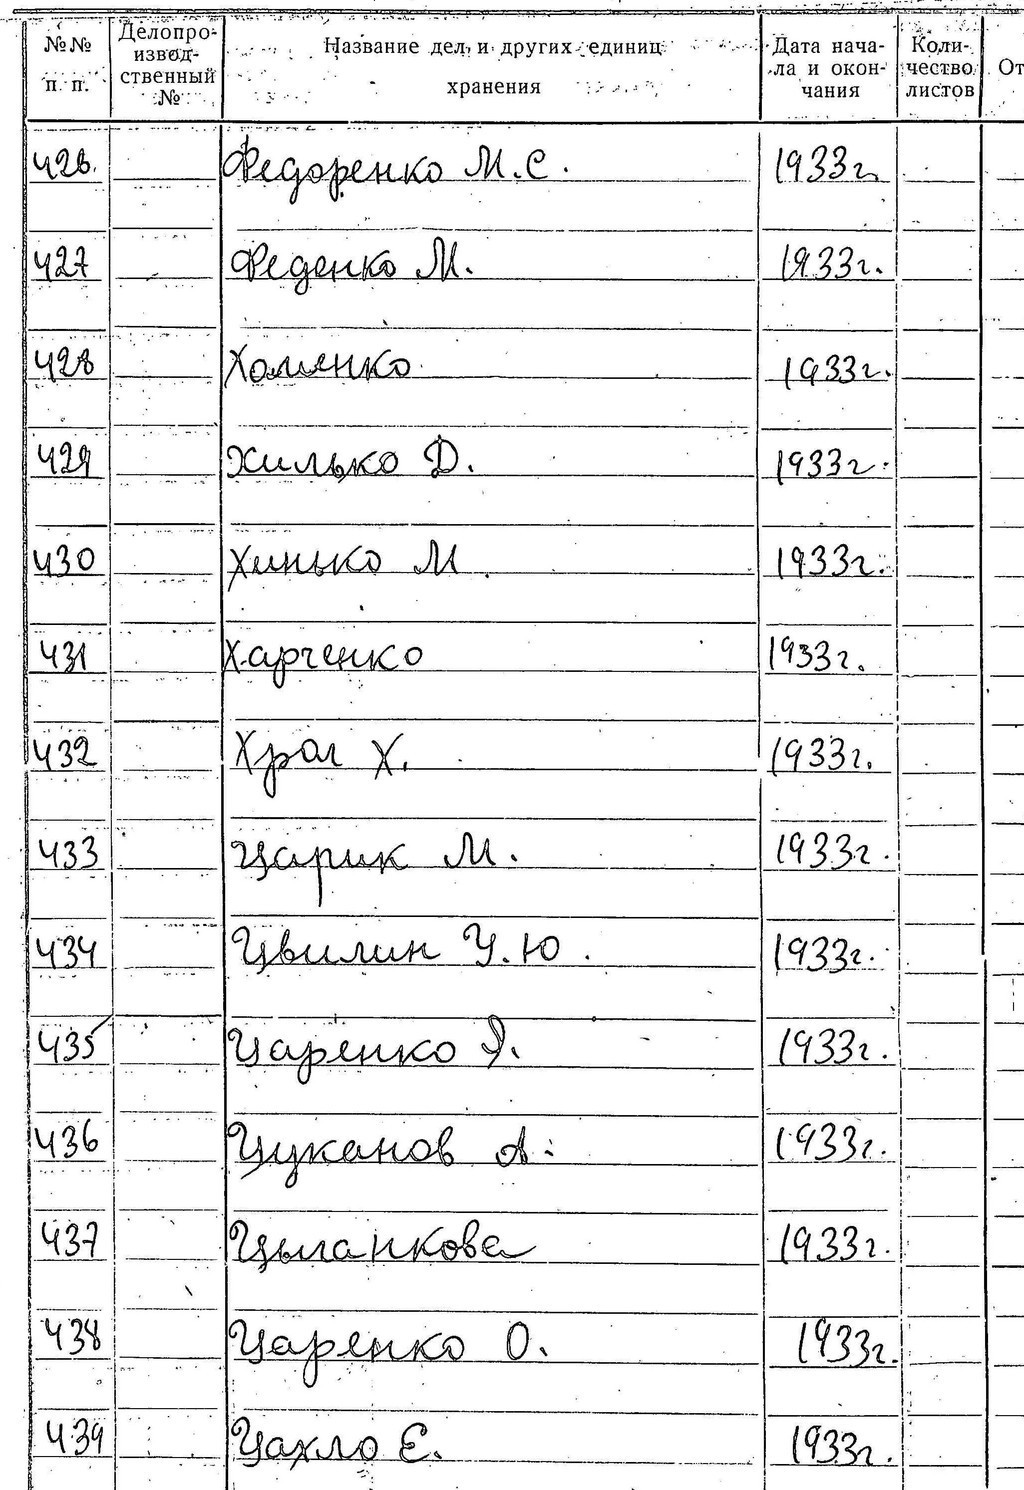 №№ п. п. Делопроизводственный № Название дел и других единиц хранения Дата начала и окончания Количество листов От
426. Федоренко М.С. 1933г.
427 Феденко М. 1933г.
428 Хоменко 1933г.
429 Хилько Д. 1933г.
430 Хинько М. 1933г.
431 Харченко 1933г.
432 Хрол Х. 1933г.
433 Царик М. 1933г.
434 Цвилин У.Ю. 1933г.
435 Царенко Я. 1933г.
436 Цуканов А. 1933г.
437 Цыганкова 1933г.
438 Царенко О. 1933г.
439 Цахло Е. 1933г.